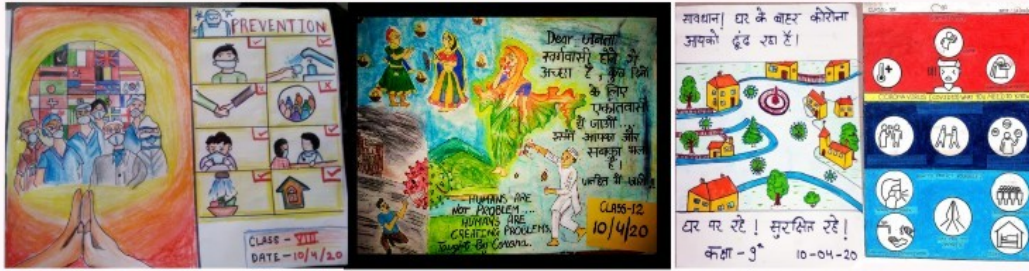 PREVENTION
CLASS - VIII
DATE - 10/4/20
Dear जनता
स्वर्गवासी होने से
अच्छा है, कुछ दिनों
के लिए
एकांतवासी
हो जाओ...
इसमें आपका और
सबका भला
है।
HUMANS ARE
NOT PROBLEM...
HUMANS ARE
CREATING PROBLEMS
Taught By Corona.
CLASS-12
10/4/20
सावधान! घर के बाहर कोरोना
आपको ढूंढ रहा है।
घर पर रहे! सुरक्षित रहे!
कक्षा - 9
10-04-20